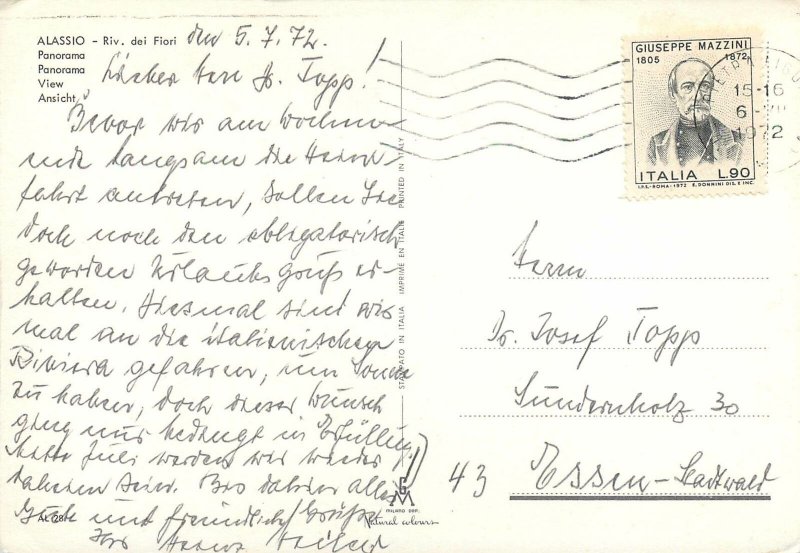 ALASSIO - Riv. dei Fiori den 5.7.72.
Panorama
Panorama
View
Ansicht
Lieber Herr Dr. Topp!
Bevor wir am Wochen-
ende langsam die Heim-
fahrt antreten, sollen Sie
doch noch den obligatorisch
gewordenen Urlaubsgruß er-
halten. Diesmal sind wir
mal an die italienische
Riviera gefahren, um Sonne
zu haben, doch dieser Wunsch
ging nur bedingt in Erfüllung.
Mitte Juli werden wir wieder
daheim sein. Bis dahin alles
Gute und freundliche Grüße
Ihr Heinz
AL/26
STAMPATO IN ITALIA IMPRIME EN ITALIE PRINTED IN ITALY
MILANO DEP.
Natural colours
GIUSEPPE MAZZINI
1805 1872
ITALIA L.90
I.P.S.-ROMA-1972 E. DONNINI DIS. E INC.
15-16
6-VII
1972
Herrn
Dr. Josef Topp
Sundernholz 30
43 Essen-Stadtwald